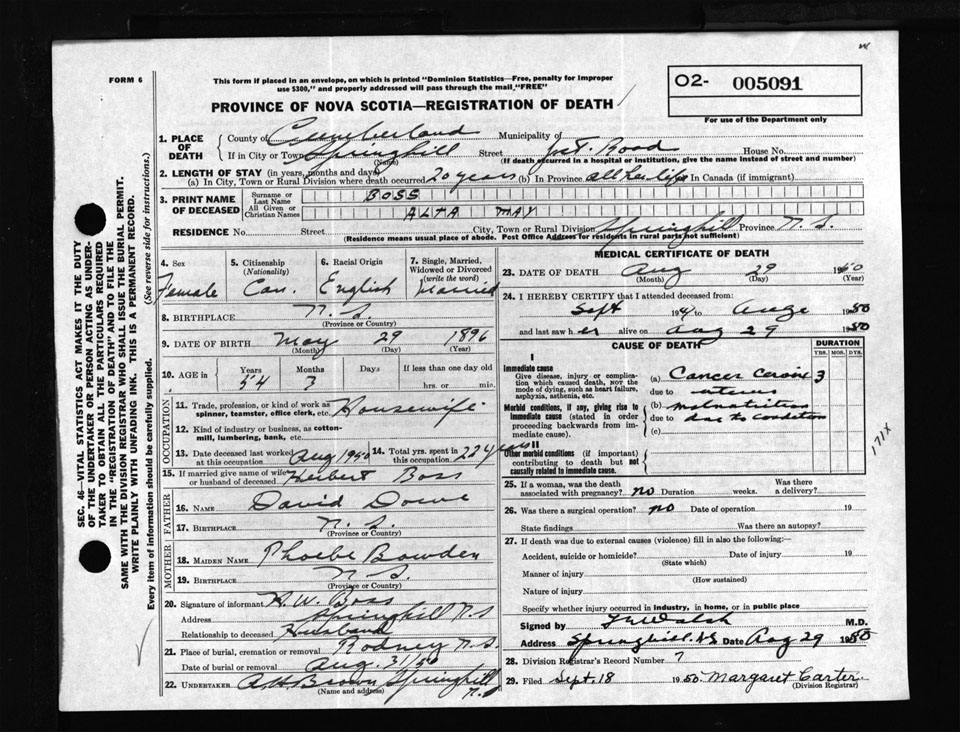 FORM 6
This form if placed in an envelope, on which is printed "Dominion Statistics—Free, penalty for improper
use $300," and properly addressed will pass through the mail "FREE"
PROVINCE OF NOVA SCOTIA—REGISTRATION OF DEATH
O2- 005091
For use of the Department only
1. PLACE OF DEATH
County of Cumberland Municipality of
If in City or Town Springhill Street Jct. Road House No.
(Name) (If death occurred in a hospital or institution, give the name instead of street and number)
2. LENGTH OF STAY (in years, months and days)
(a) In City, Town or Rural Division where death occurred 20 years (b) In Province all her life In Canada (if immigrant)
3. PRINT NAME OF DECEASED
Surname or Last Name BOSS
All Given or Christian Names ALTA MAY
RESIDENCE No. Street City, Town or Rural Division Springhill Province N.S.
(Residence means usual place of abode. Post Office Address for residents in rural parts not sufficient)
4. Sex 5. Citizenship (Nationality) 6. Racial Origin 7. Single, Married, Widowed or Divorced (write the word)
Female Can. English Married
8. BIRTHPLACE N.S.
(Province or Country)
9. DATE OF BIRTH May 29 1896
(Month) (Day) (Year)
10. AGE in Years Months Days If less than one day old
54 3 hrs. or min.
OCCUPATION
11. Trade, profession, or kind of work as spinner, teamster, office clerk, etc. Housewife
12. Kind of industry or business, as cotton-mill, lumbering, bank, etc.
13. Date deceased last worked at this occupation Aug 1950 14. Total yrs. spent in this occupation 22 years
15. If married give name of wife or husband of deceased Herbert Boss
FATHER
16. NAME David
17. BIRTHPLACE N.S.
(Province or Country)
MOTHER
18. MAIDEN NAME Phoebe Bowden
19. BIRTHPLACE N S.
(Province or Country)
20. Signature of informant H.W. Boss
Address Springhill N.S
Relationship to deceased Husband
21. Place of burial, cremation or removal Rodney N.S.
Date of burial or removal Aug. 31/50
22. UNDERTAKER A H Brown Springhill N.S
(Name and address)
MEDICAL CERTIFICATE OF DEATH
23. DATE OF DEATH Aug 29 1950
(Month) (Day)
24. I HEREBY CERTIFY that I attended deceased from:
Sept 194 to 1950
and last saw her alive on Aug 29 1950
CAUSE OF DEATH DURATION
YRS. MOS. DYS.
I
Immediate cause
Give disease, injury or complication which caused death, NOT the mode of dying, such as heart failure, asphyxia, asthenia, etc.
(a) Cancer Cervix 3
due to uterus
Morbid conditions, if any, giving rise to immediate cause (stated in order proceeding backwards from immediate cause).
(b) Malnutrition
due to due to condition
(c)
II
Other morbid conditions (if important) contributing to death but not causally related to immediate cause.
171X
25. If a woman, was the death associated with pregnancy? no Duration weeks. Was there a delivery?
26. Was there a surgical operation? no Date of operation 19
State findings Was there an autopsy?
27. If death was due to external causes (violence) fill in also the following:—
Accident, suicide or homicide? Date of injury 19
(State which)
Manner of injury
(How sustained)
Nature of injury
Specify whether injury occurred in industry, in home, or in public place
Signed by Walsh M.D.
Address Springhill N.S Date Aug 29 1950
28. Division Registrar's Record Number 7
29. Filed Sept. 18 1950 Margaret Carter
(Division Registrar)
SEC. 46—VITAL STATISTICS ACT MAKES IT THE DUTY
OF THE UNDERTAKER OR PERSON ACTING AS UNDER-
TAKER TO OBTAIN ALL THE PARTICULARS REQUIRED
IN THE "REGISTRATION OF DEATH" AND TO FILE THE
SAME WITH THE DIVISION REGISTRAR WHO SHALL ISSUE THE BURIAL PERMIT.
WRITE PLAINLY WITH UNFADING INK. THIS IS A PERMANENT RECORD.
Every item of information should be carefully supplied. (See reverse side for instructions.)